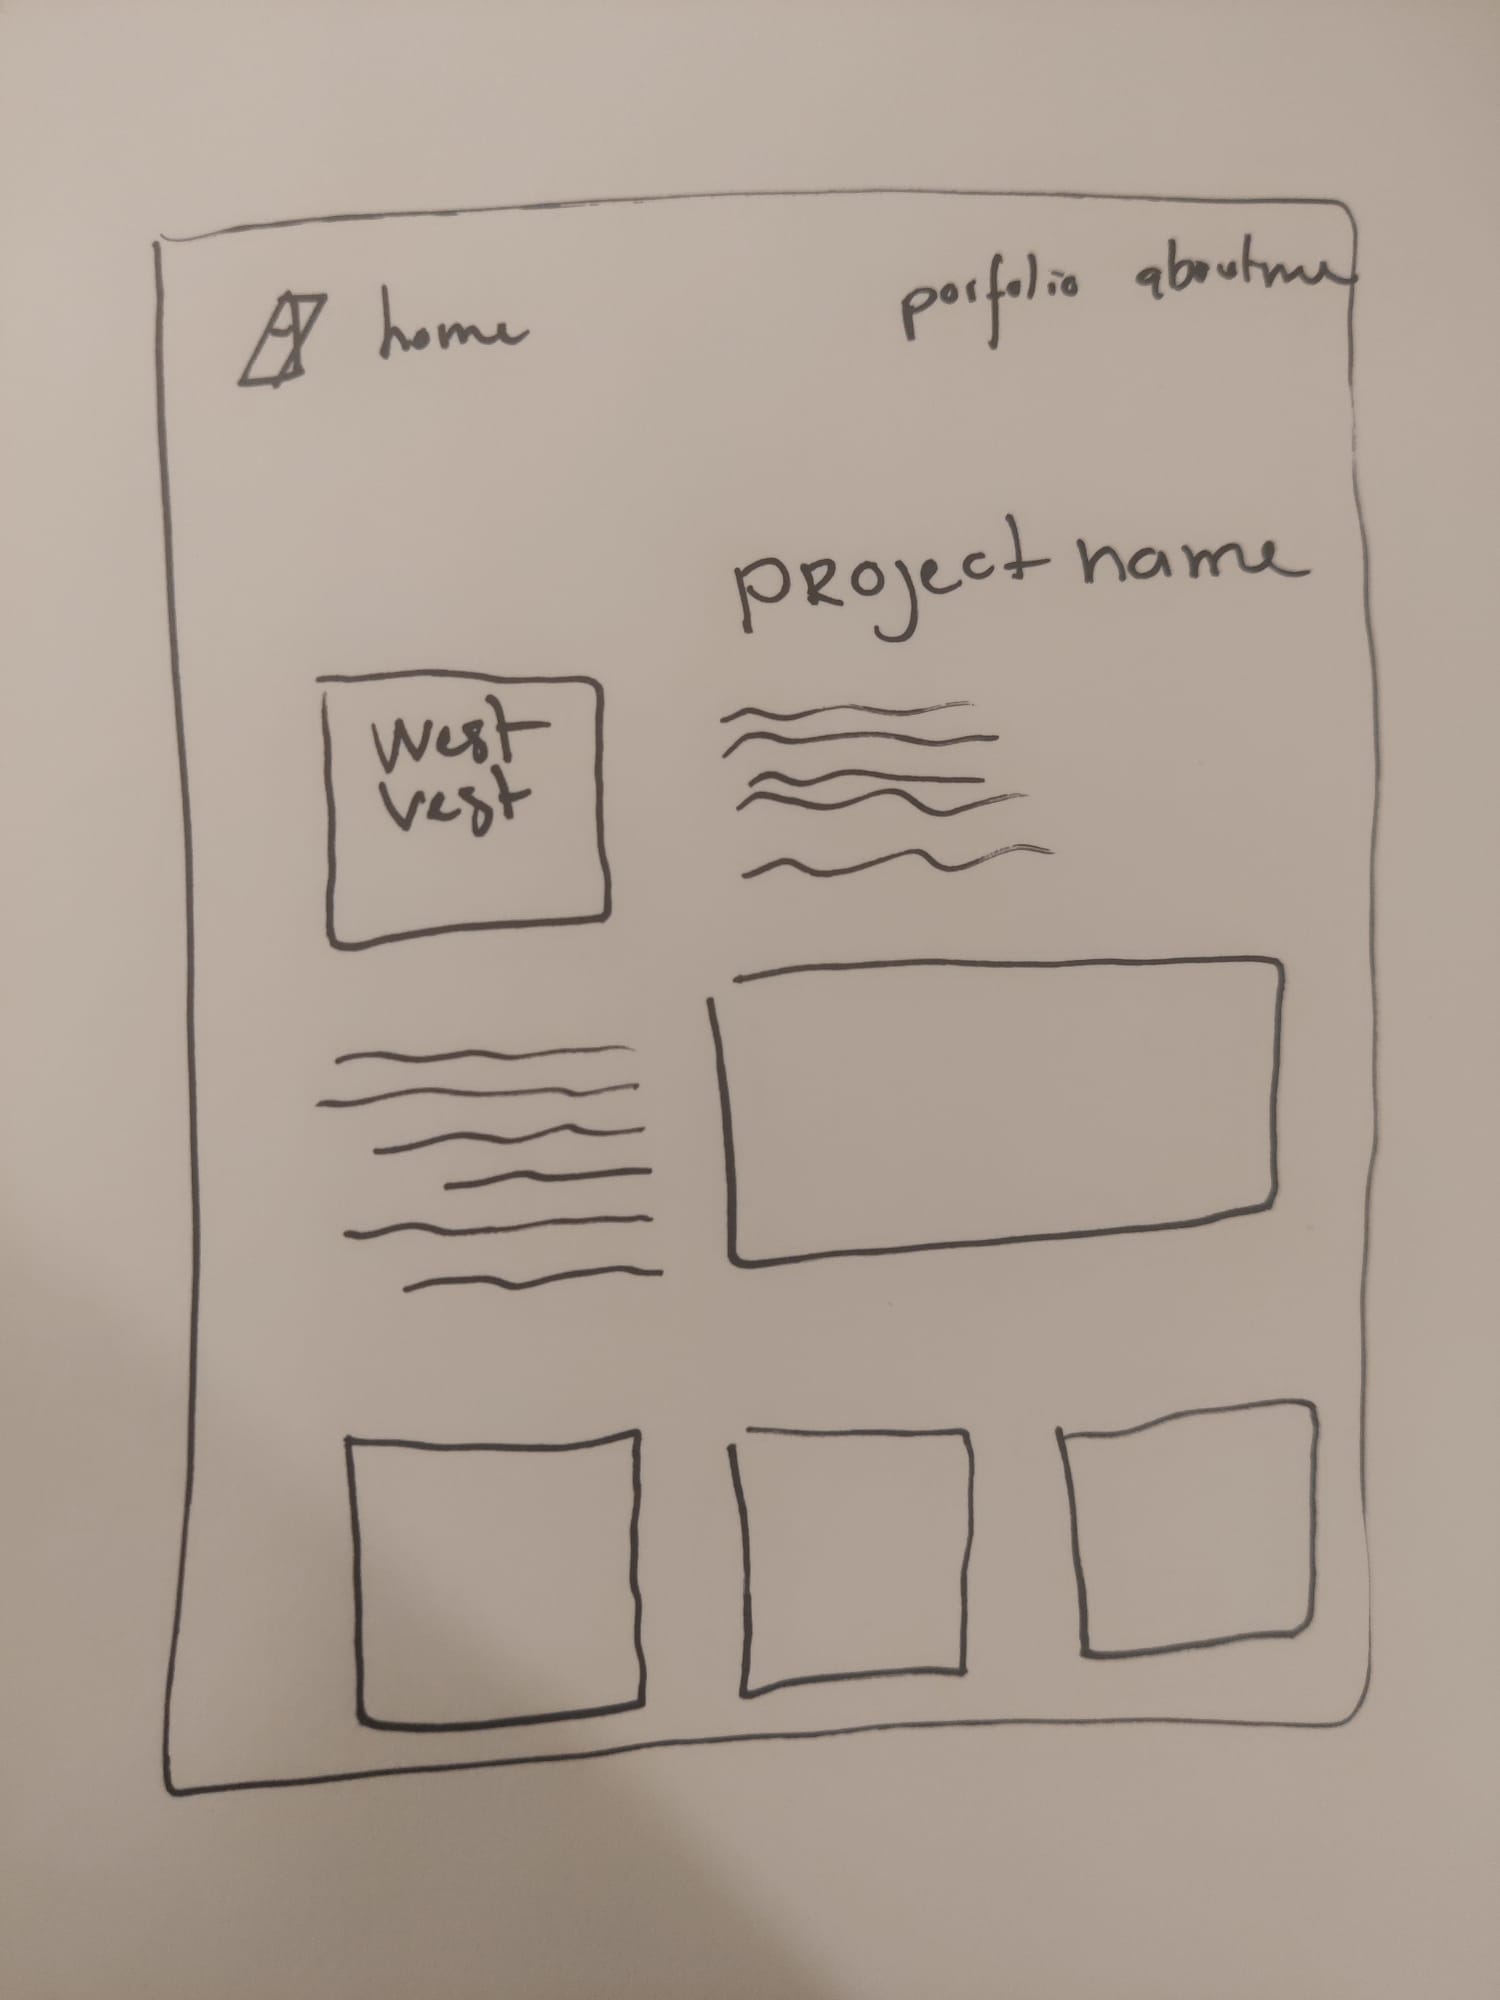 home
porfolio aboutme
project name
west
vest